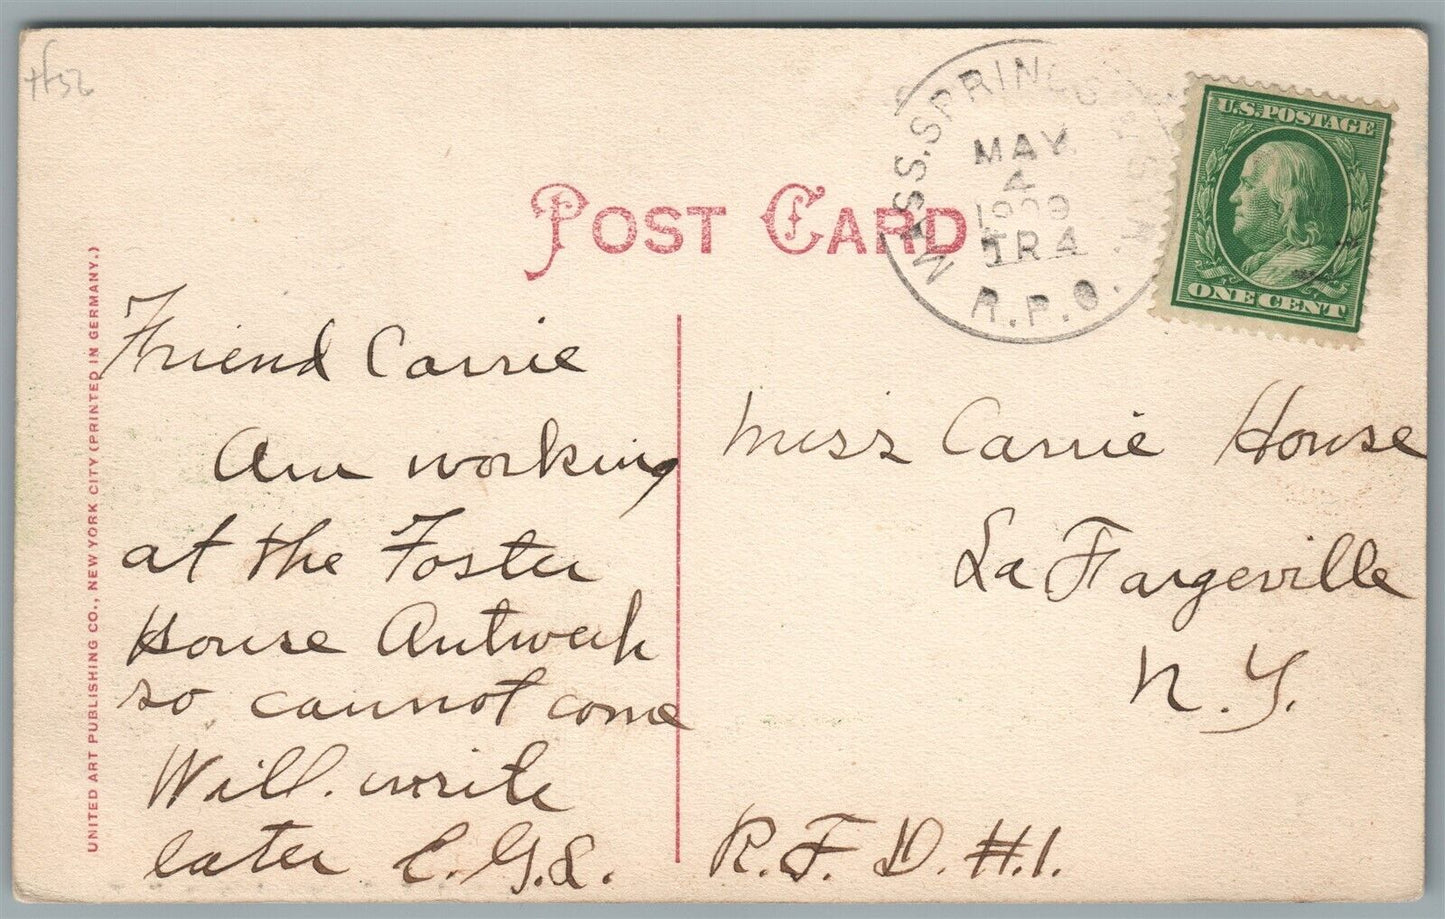 POST CARD
MASS. SPRINGS
MAY
4
1909
TR 4
R.P.O.
U.S. POSTAGE
ONE CENT
Friend Carrie
Am working
at the Foster
House Antwerh
so cannot come
Will write
later C.G.L.
Miss Carrie House
La Fargeville
N.Y.
R.F.D. #.1.
UNITED ART PUBLISHING CO., NEW YORK CITY (PRINTED IN GERMANY.)